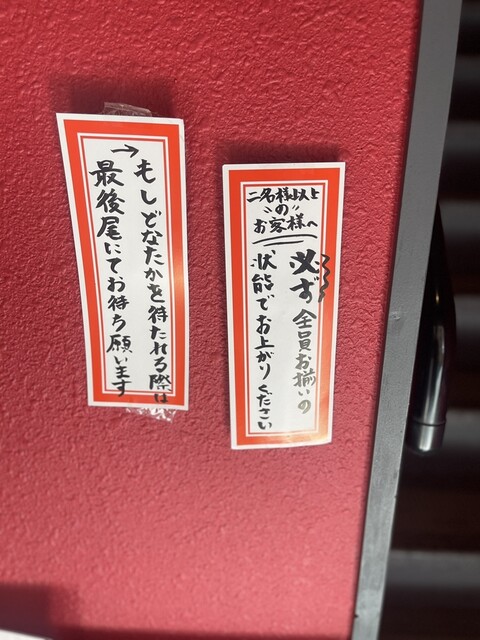 二名様以上
〝の〟
お客様へ
必ず全員お揃いの
状態でお上がりください
→もしどなたかを待たれる際は
最後尾にてお待ち願います